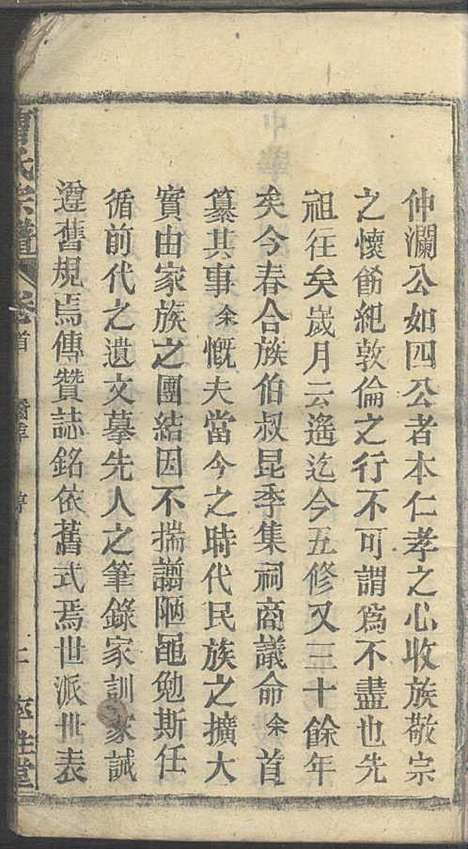 仲瀾公如四公者本仁孝之心收族敬宗
之懷飭紀敦倫之行不可謂為不盡也先
祖往矣歲月云遙迄今五修又三十餘年
矣今春合族伯叔昆季集祠商議命余首
纂其事余慨夫當今之時代民族之擴大
實由家族之團結因不揣譾陋黽勉斯任
循前代之遺文摹先人之筆錄家訓家誡
遵舊規焉傳贊誌銘依舊式焉世派世表
氏宗譜 卷首